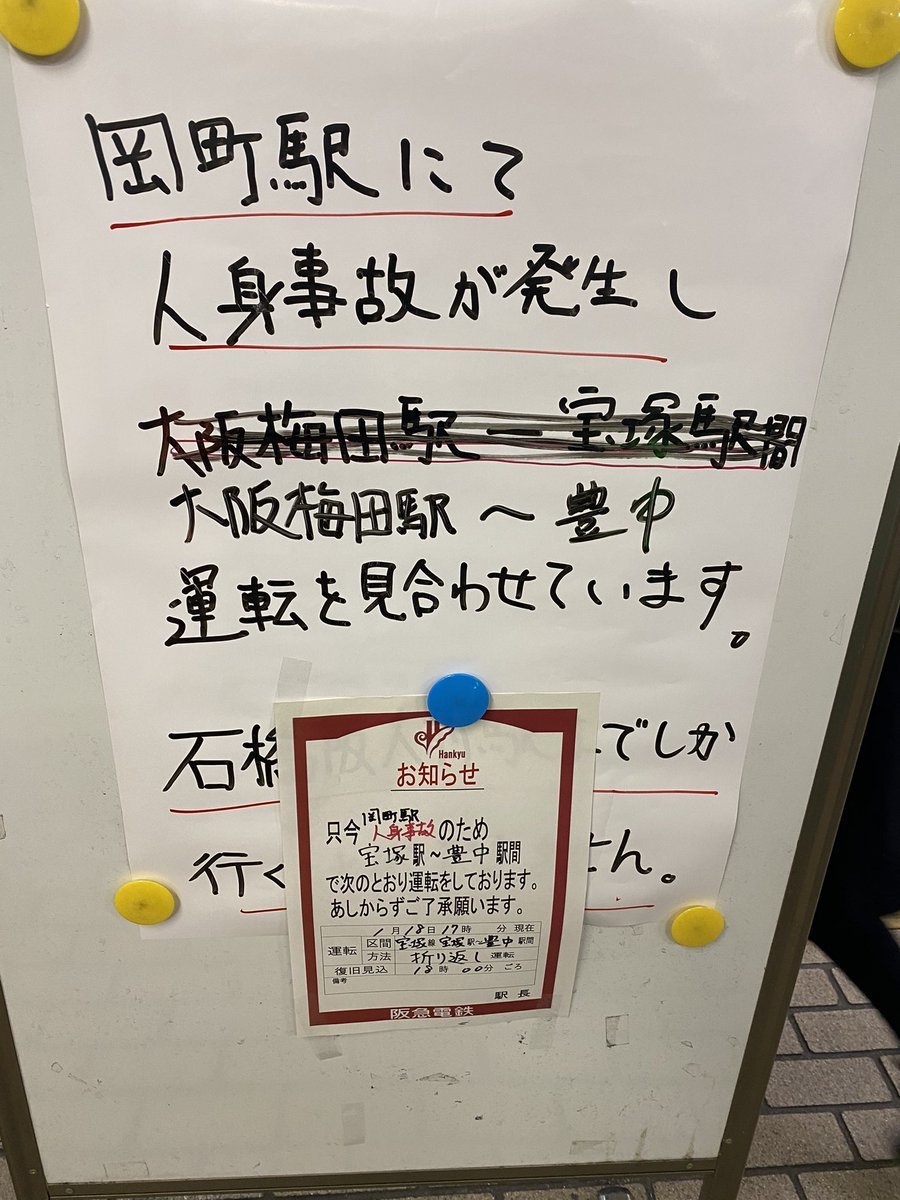 岡町駅にて
人身事故が発生し
大阪梅田駅ー宝塚駅間
大阪梅田駅〜豊中
運転を見合わせています。
石橋 でしか
行く せん。
Hankyu
お知らせ
岡町駅
只今 人身事故 のため
宝塚駅〜豊中駅間
で次のとおり運転をしております。
あしからずご了承願います。
1月18日17時 分現在
運転 区間 宝塚線 宝塚駅〜豊中駅間
方法 折り返し運転
復旧見込 18時00分ごろ
備考
駅長
阪急電鉄